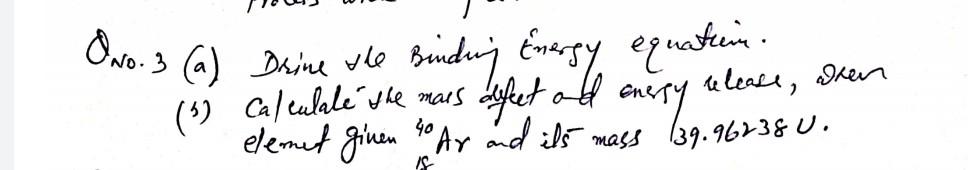 Q No. 3 (a) Drine the Binding Energy equation.
(b) Calculate the mass defect and energy release, when
element given ⁴⁰₁₈Ar and its mass 39.96238 U.